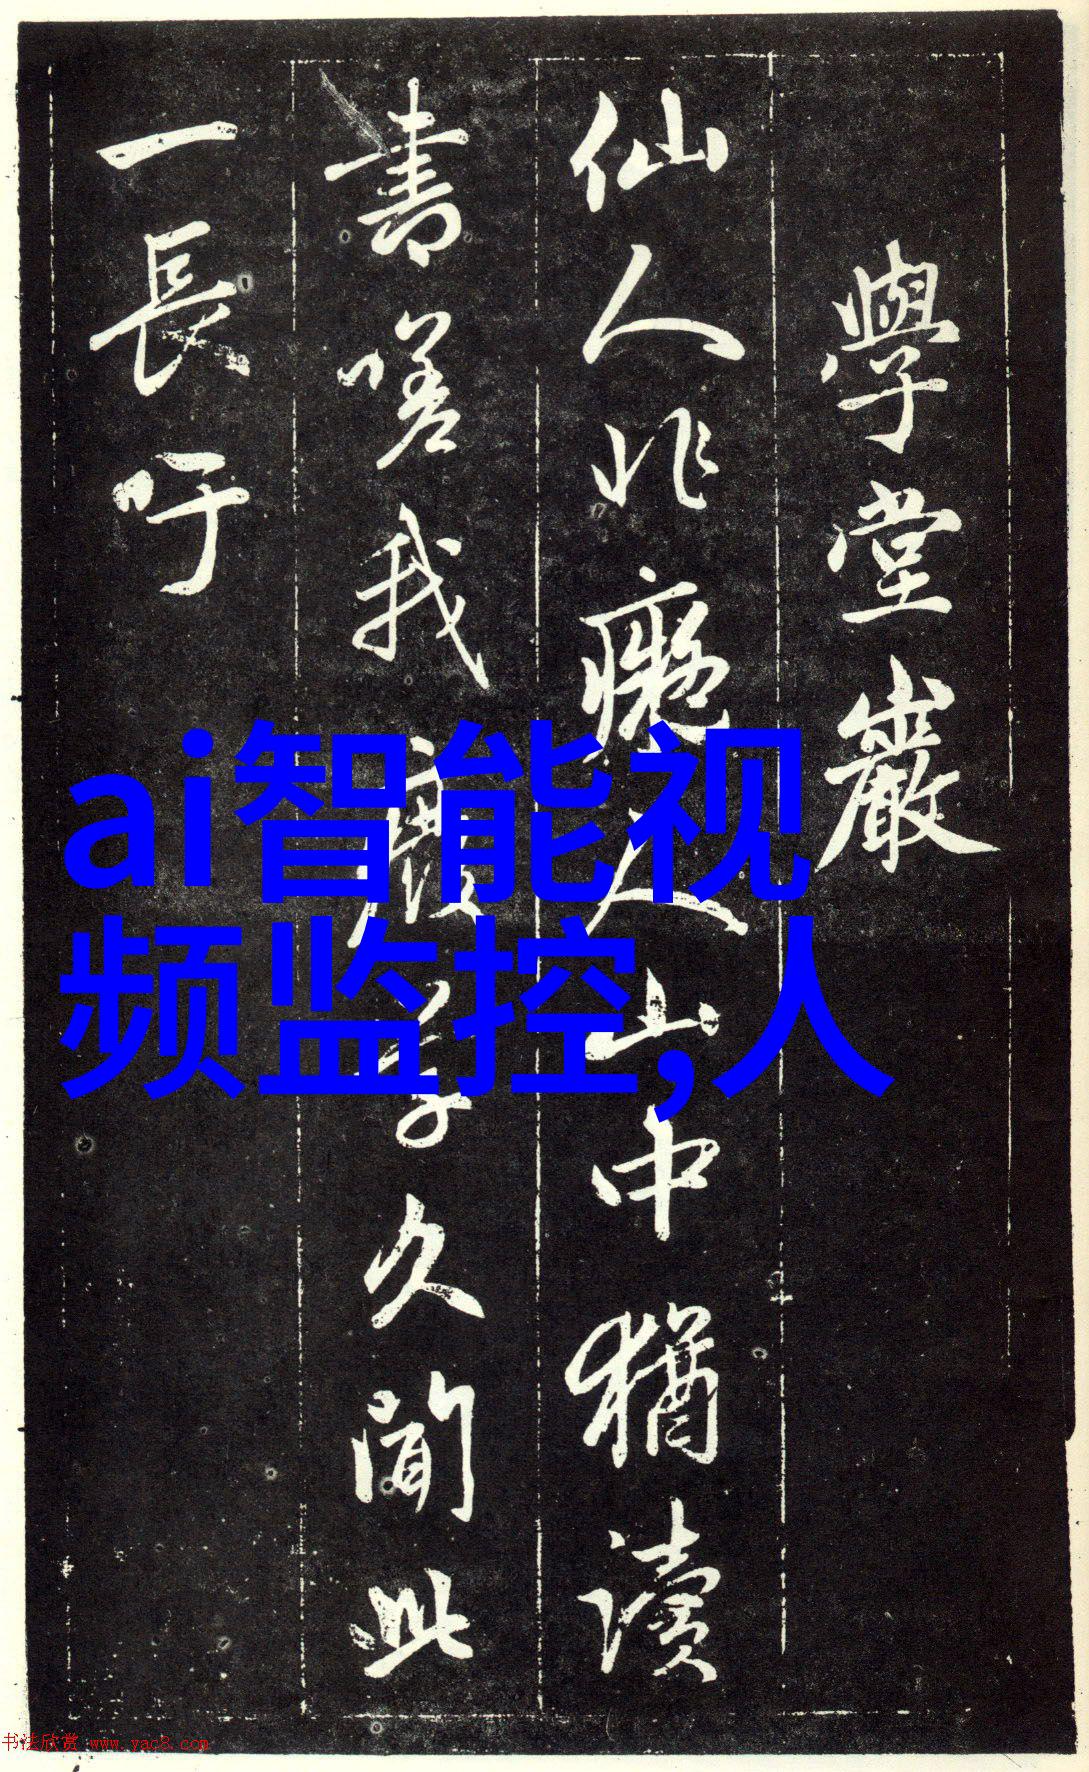 學堂巖
仙人非癡人山中猶讀
書嗟我廢學久聞此
一長吁
ai智能视
频监控,人
书法欣赏 www.yac8.com